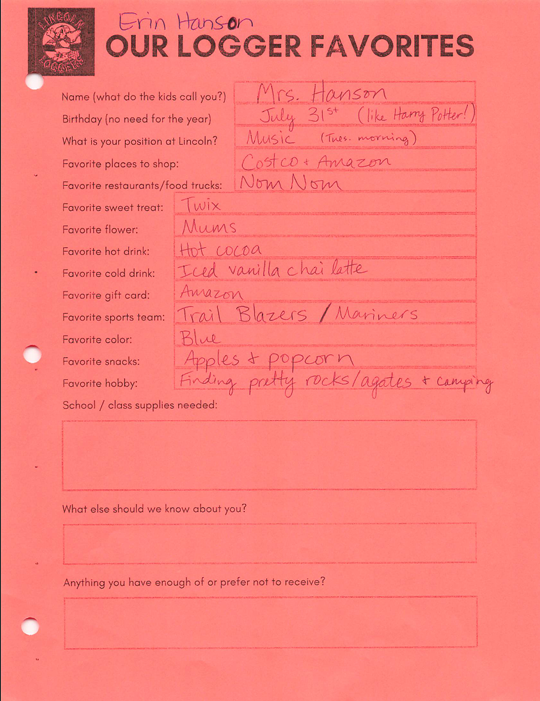 Erin Hanson
LINCOLN
LOGGERS
OUR LOGGER FAVORITES
Name (what do the kids call you?) Mrs. Hanson
Birthday (no need for the year) July 31st (like Harry Potter!)
What is your position at Lincoln? Music (Tues. morning)
Favorite places to shop: Costco + Amazon
Favorite restaurants/food trucks: Nom Nom
Favorite sweet treat: Twix
Favorite flower: Mums
Favorite hot drink: Hot cocoa
Favorite cold drink: Iced vanilla chai latte
Favorite gift card: Amazon
Favorite sports team: Trail Blazers / Mariners
Favorite color: Blue
Favorite snacks: Apples + popcorn
Favorite hobby: Finding pretty rocks/agates + camping
School / class supplies needed:
What else should we know about you?
Anything you have enough of or prefer not to receive?